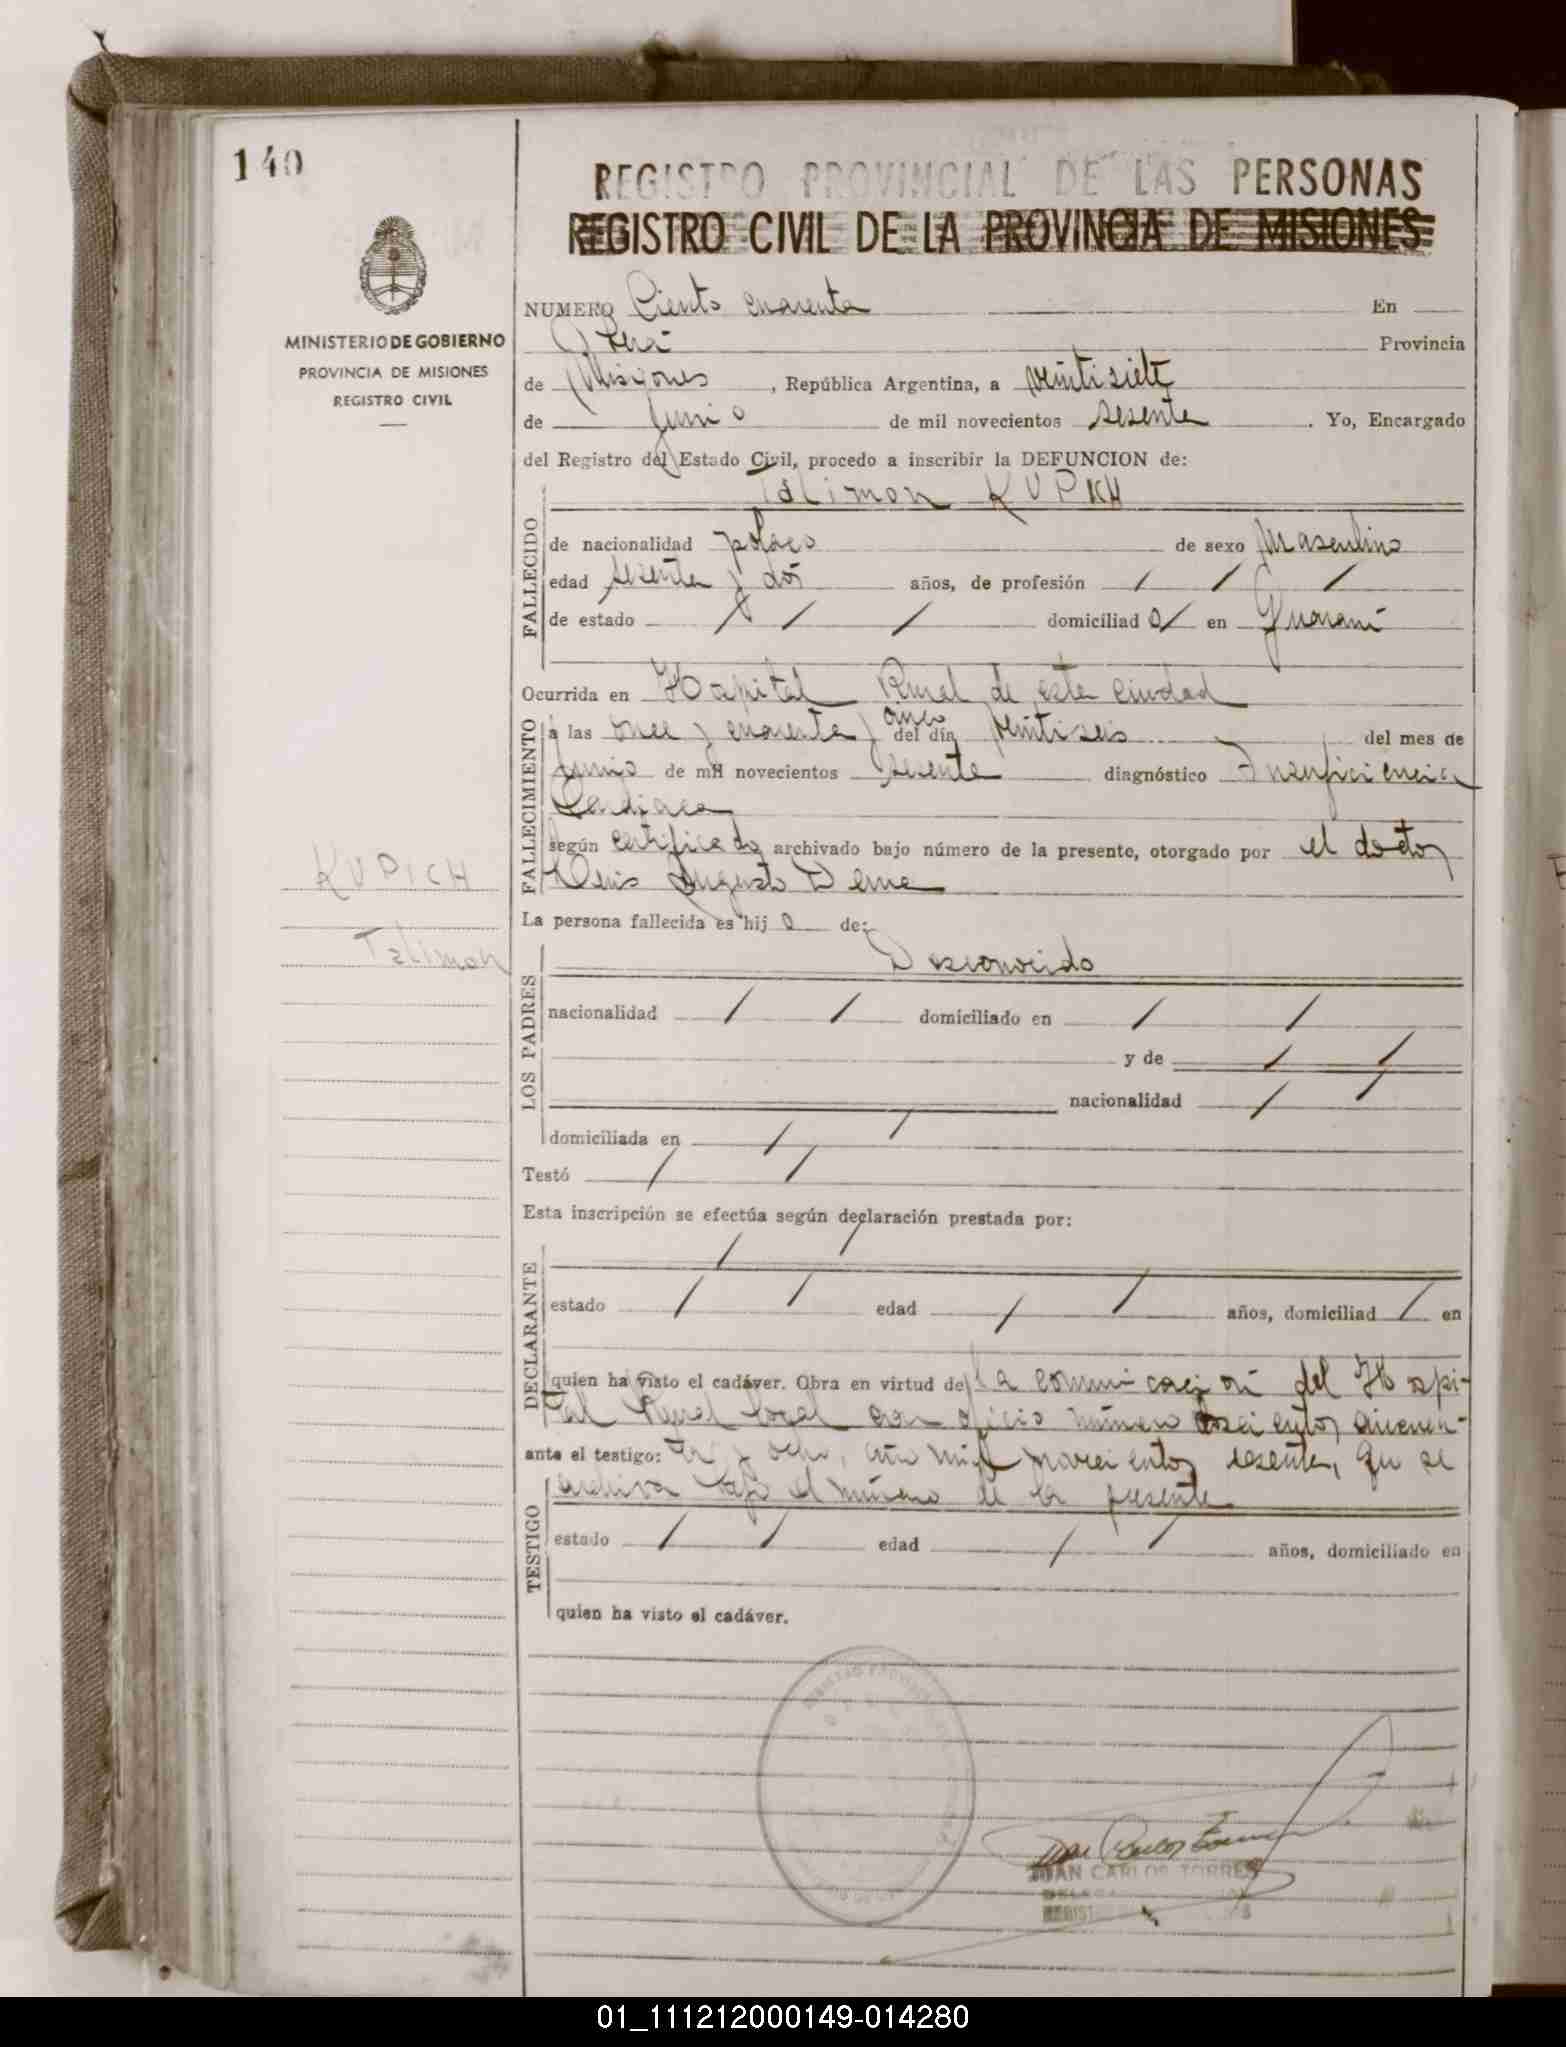 140
REGISTRO PROVINCIAL DE LAS PERSONAS
REGISTRO CIVIL DE LA PROVINCIA DE MISIONES
MINISTERIO DE GOBIERNO
PROVINCIA DE MISIONES
REGISTRO CIVIL
NUMERO Ciento cuarenta En
Oberá Provincia
de Misiones, República Argentina, a veintisiete
de Junio de mil novecientos sesenta. Yo, Encargado
del Registro del Estado Civil, procedo a inscribir la DEFUNCION de:
Talimon KUPICH
FALLECIDO
de nacionalidad polaco de sexo Masculino
edad sesenta y dos años, de profesión / / /
de estado / / / domiciliad o/ en Guaraní
Ocurrida en Hospital Rural de esta ciudad
FALLECIMIENTO
a las once y cuarenta y cinco del día veintiseis del mes de
Junio de mil novecientos sesenta diagnóstico Insuficiencia
Cardiaca
según certificado archivado bajo número de la presente, otorgado por el doctor
Luis Augusto
La persona fallecida es hij o de:
LOS PADRES
Desconocido
nacionalidad / / domiciliado en / /
y de / /
nacionalidad / /
domiciliada en / /
Testó / /
Esta inscripción se efectúa según declaración prestada por:
DECLARANTE
/ /
estado / / edad / / años, domiciliad / en
quien ha visto el cadáver. Obra en virtud de la comunicación del Hospi-
tal Rural local con oficio número doscientos cincuen-
ante el testigo: ta y ocho, año mil novecientos sesenta, que se
archiva bajo el número de la presente
TESTIGO
estado / / edad / / años, domiciliado en
quien ha visto el cadáver.
KUPICH
Talimon
JUAN CARLOS TORRES
01_111212000149-014280